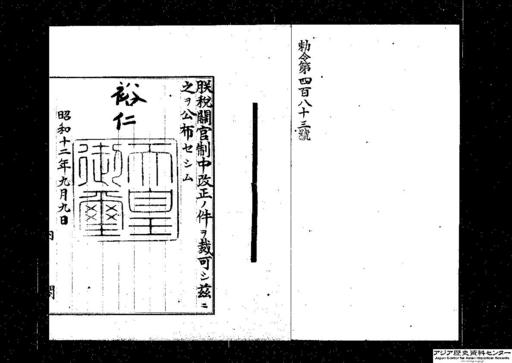 勅令第四百八十三號
朕稅關官制中改正ノ件ヲ裁可シ茲ニ
之ヲ公布セシム
裕仁
天皇御璽
昭和十二年九月九日
内閣
アジア歴史資料センター
Japan Center for Asian Historical Records